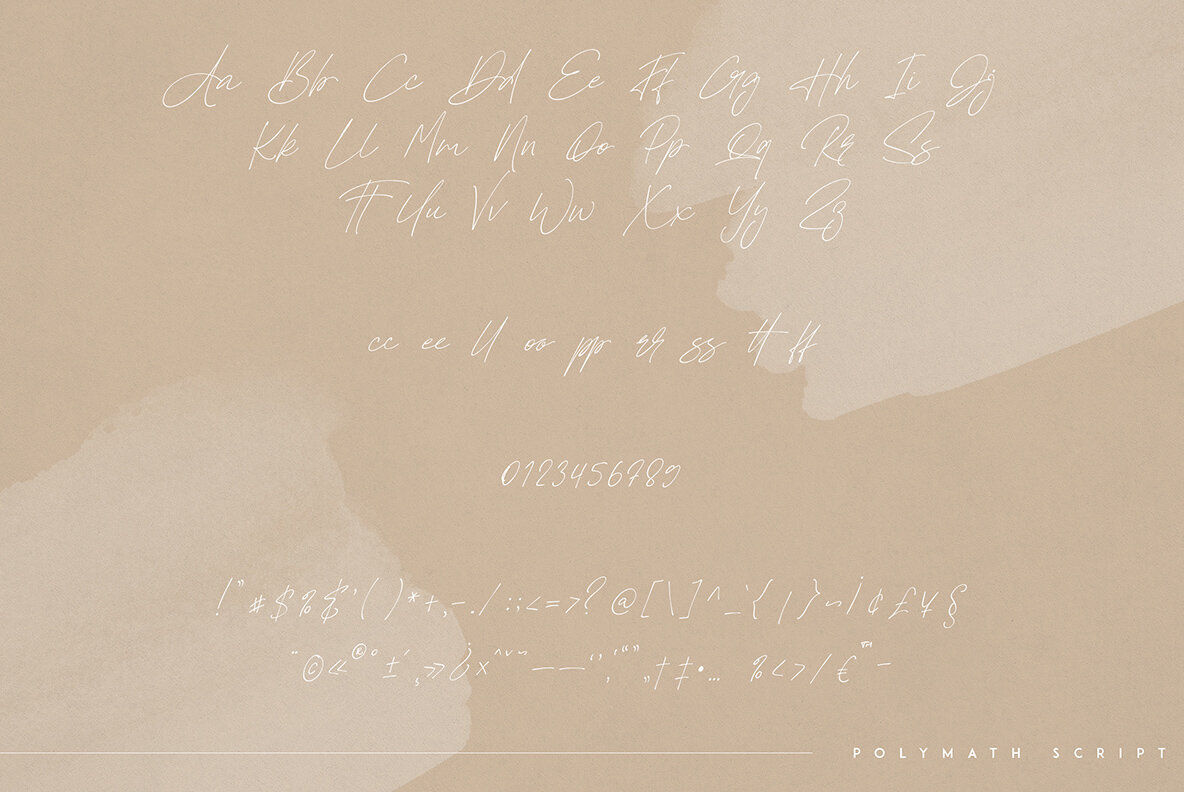 Aa Bb Cc Dd Ee Ff Gg Hh Ii Jj
Kk Ll Mm Nn Oo Pp Qq Rr Ss
Tt Uu Vv Ww Xx Yy Zz
cc ee ll oo pp rr ss tt ff
0123456789
!"#$%&'()*+,-./:;<=>?@[\]^_`{|}~¡¢£¥§
¨©«®°±´¸»¿×ˆˇ˜–—‘’‚“”„†‡•… ‰‹›⁄€™−
POLYMATH SCRIPT